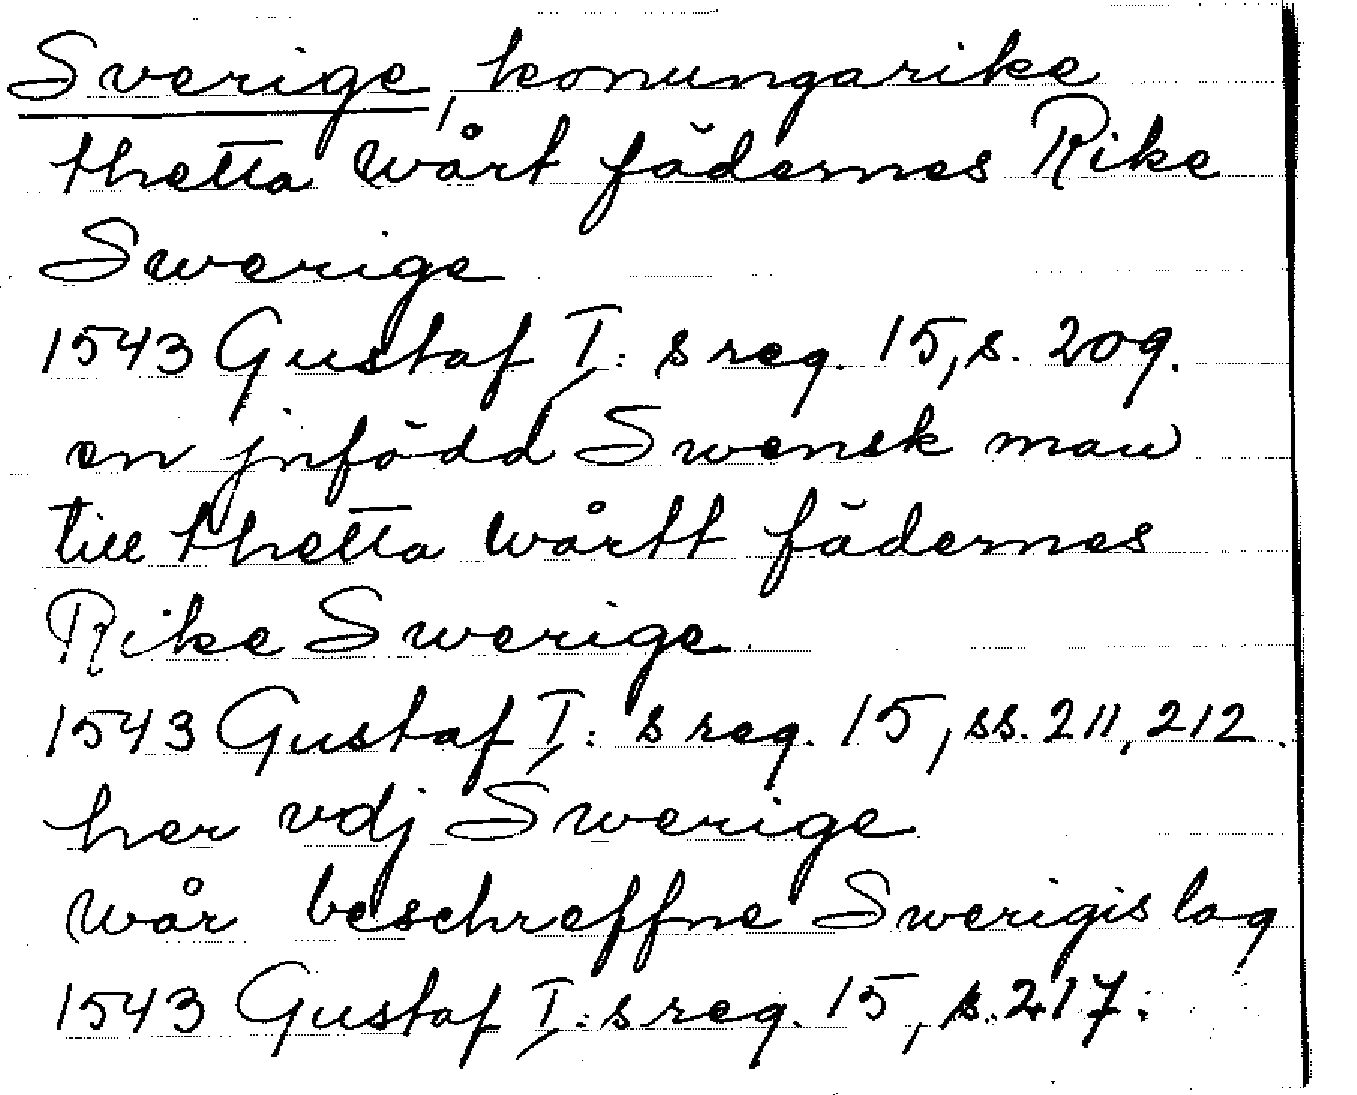 Sverige, konungarike
thetta wårt fädernes Rike
Swerige
1543 Gustaf I:s reg. 15, s. 209.
en jnfödd Swensk man
till thetta wårtt fädernes
Rike Swerige
1543 Gustaf I:s reg. 15, ss. 211, 212.
her vdj Swerige
wår beschreffne Swerigis lag
1543 Gustaf I:s reg. 15, s. 217.